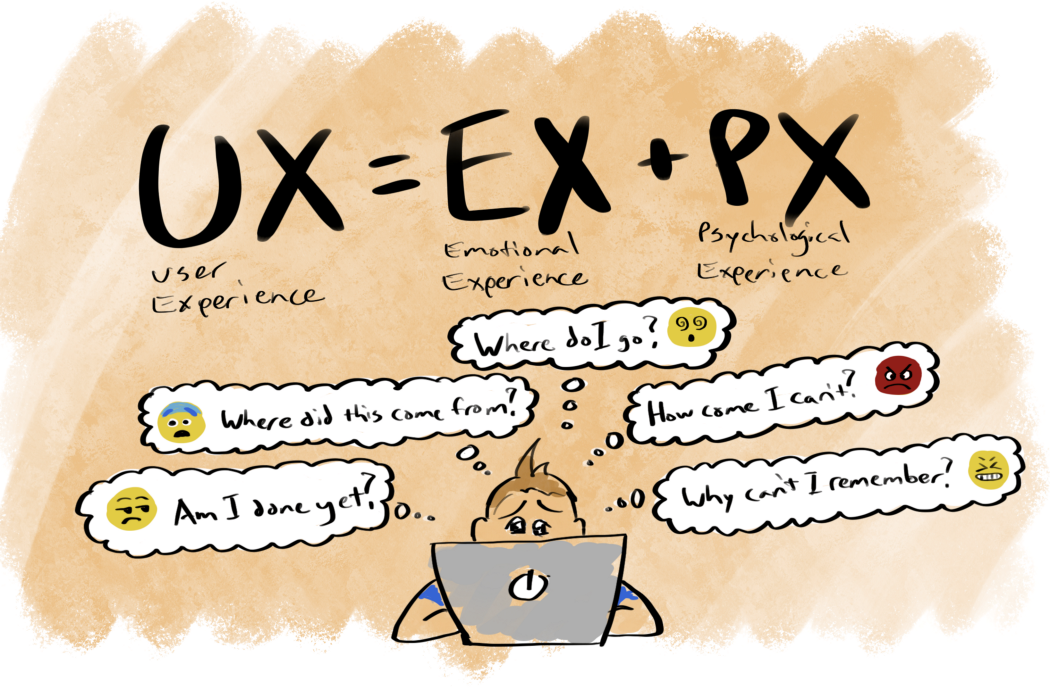 UX = EX + PX
User
Experience
Emotional
Experience
Psychological
Experience
Where do I go?
Where did this come from?
How come I can't?
Am I done yet?
Why can't I remember?